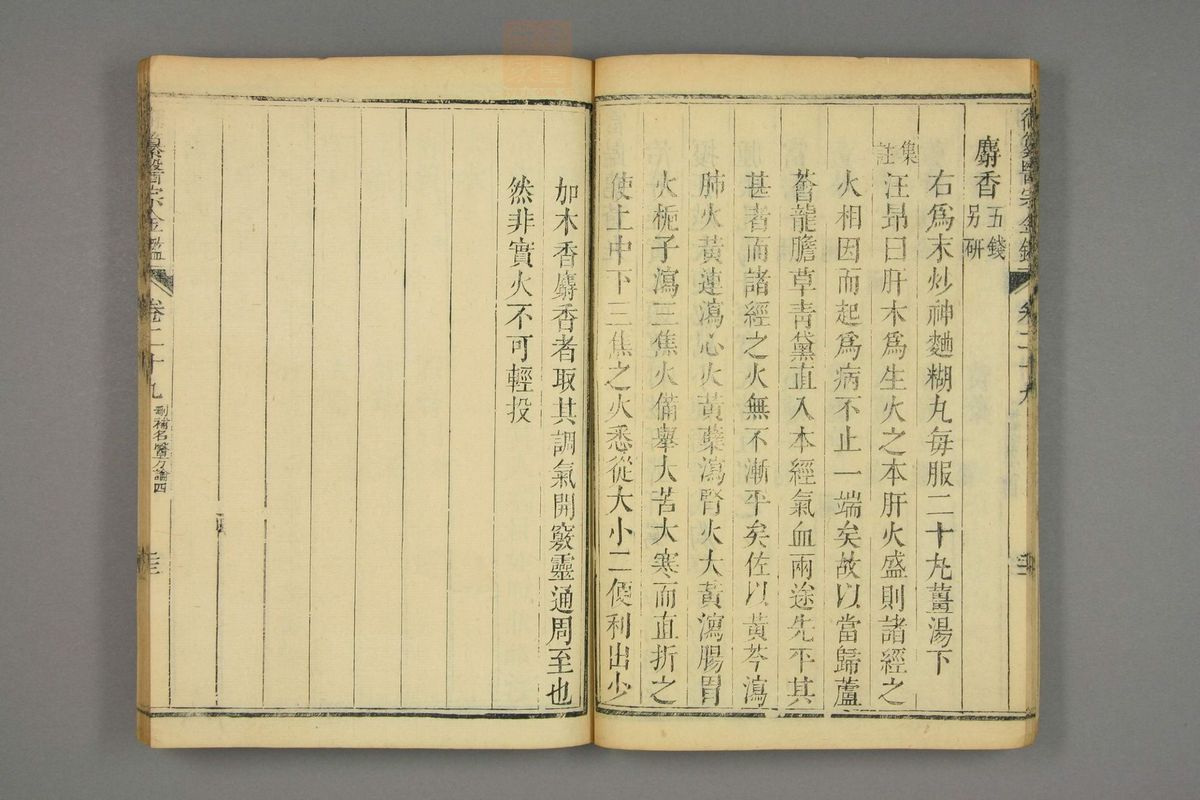 御纂醫宗金鑑 卷二十九
麝香五錢另研
右為末炒神麯糊丸每服二十丸薑湯下
集註汪昻曰肝木為生火之本肝火盛則諸經之
火相因而起為病不止一端矣故以當歸蘆
薈龍膽草靑黛直入本經氣血兩途先平其
甚者而諸經之火無不漸平矣佐以黃芩瀉
肺火黃連瀉心火黃蘗瀉腎火大黃瀉腸胃
火梔子瀉三焦火備舉大苦大寒而直折之
使上中下三焦之火悉從大小二便利出少
加木香麝香者取其調氣開竅靈通周至也
然非實火不可輕投
纂醫宗金鑑 卷二十九 刪補名醫方論四 三三